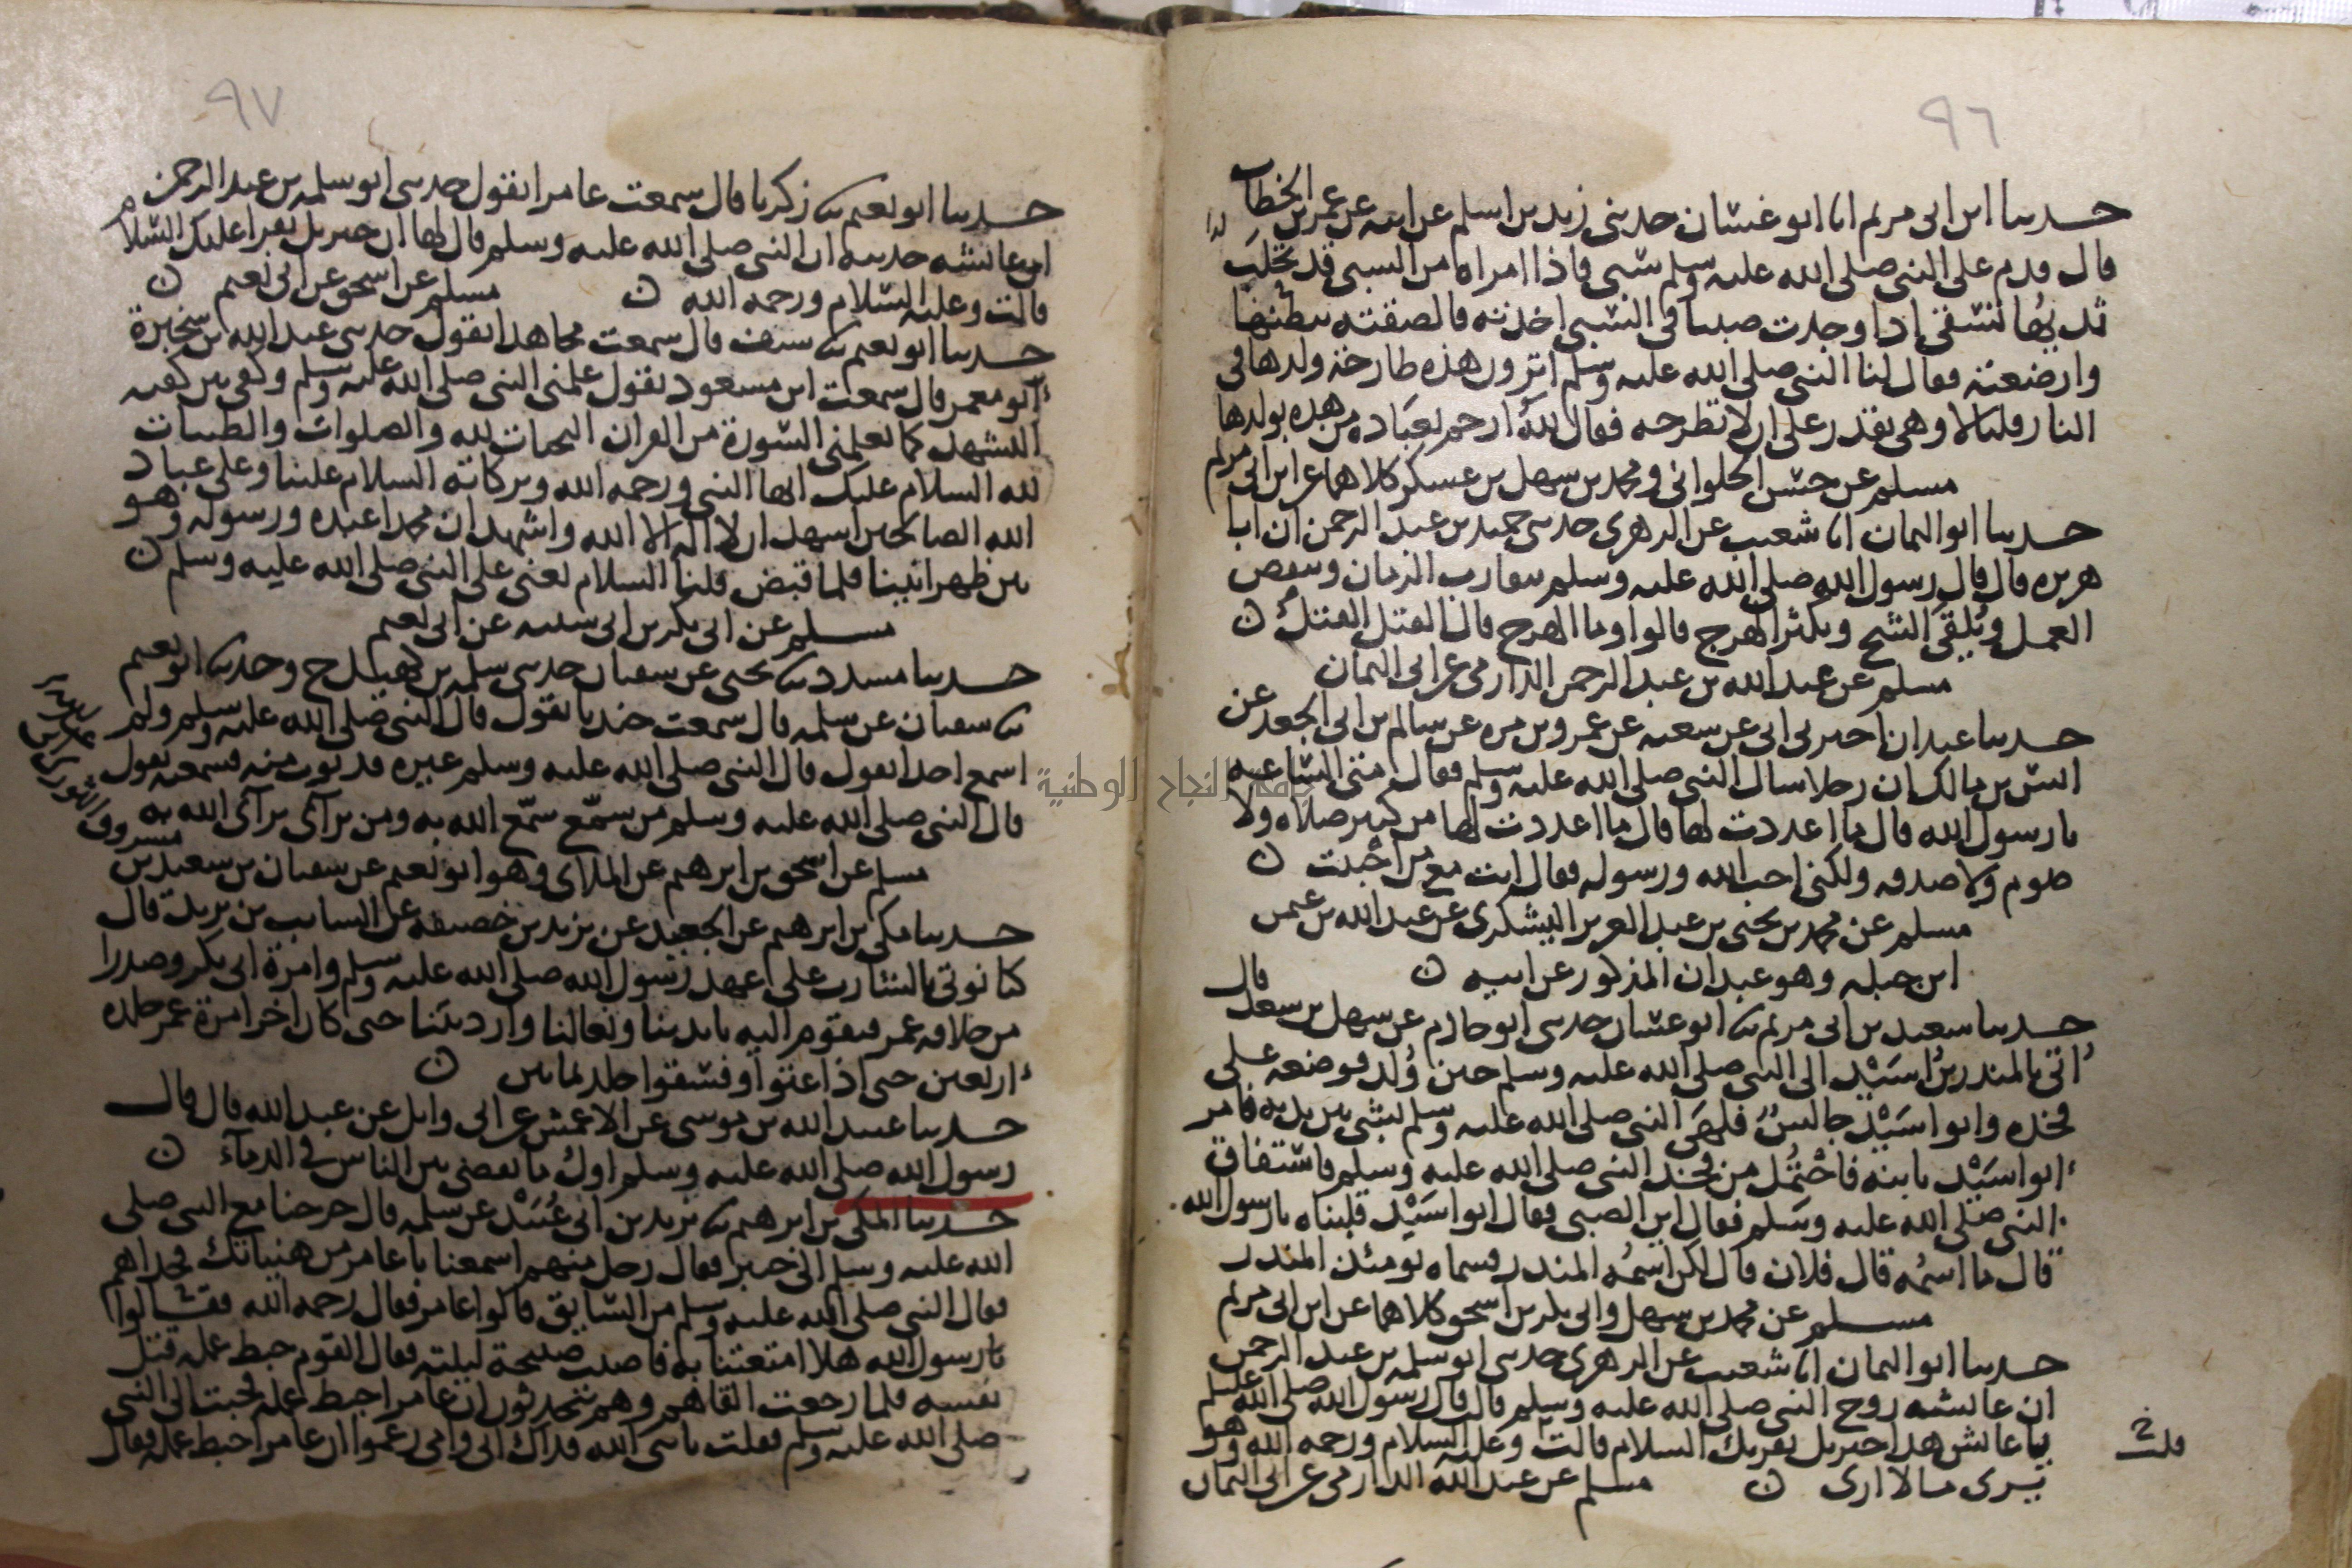 ٩٦
حدثنا ابن ابى مريم انا ابو غسان حدثنى زيد بن اسلم عن ابيه عن عمر بن الخطاب
قال قدم على النبى صلى الله عليه وسلم سبى فاذا امراة من السبى قد تحلب
ثديها تسقى اذا وجدت صبيا فى السبى اخذته فالصقته ببطنها
وارضعته فقال لنا النبى صلى الله عليه وسلم اترون هذه طارحة ولدها فى
النار قلنا لا وهى تقدر على ان لا تطرحه فقال لله ارحم بعباده من هذه بولدها
مسلم عن حسن الحلوانى ومحمد بن سهل بن عسكر كلاهما عن ابن ابى مريم
حدثنا ابو اليمان انا شعيب عن الزهرى حدثنى حميد بن عبد الرحمن ان ابا
هريره قال قال رسول الله صلى الله عليه وسلم يتقارب الزمان وينقص
العمل ويلقى الشح ويكثر الهرج قالوا وما الهرج قال القتل القتل ن
مسلم عن عبد الله بن عبد الرحمن الدارمى عن ابى اليمان
حدثنا عبدان اخبرنى ابى عن شعبه عن عمرو بن مره عن سالم بن ابى الجعد عن
انس بن مالك ان رجلا سال النبى صلى الله عليه وسلم فقال متى الساعه
يا رسول الله قال ما اعددت لها قال ما اعددت لها من كبير صلاه ولا
صوم ولا صدقه ولكنى احب الله ورسوله فقال انت مع من احببت ن
مسلم عن محمد بن يحيى بن عبد العزيز اليشكرى عن عبد الله بن عثمن
ابن جبله وهو عبدان المذكور عن ابيه ن
حدثنا سعيد بن ابى مريم ثنا ابو غسان حدثنى ابو حازم عن سهل بن سعد قال
اتى بالمنذر بن اسيد الى النبى صلى الله عليه وسلم حين ولد فوضعه على
فخذه وابو اسيد جالس فلهى النبى صلى الله عليه وسلم بشى بين يديه فامر
ابو اسيد بابنه فاحتمل من فخذ النبى صلى الله عليه وسلم فاستفاق
النبى صلى الله عليه وسلم فقال اين الصبى فقال ابو اسيد قلبناه يا رسول الله
قال ما اسمه قال فلان قال لكن اسمه المنذر فسماه يومئذ المنذر
مسلم عن محمد بن سهل وابى بكر بن اسحق كلاهما عن ابن ابى مريم
حدثنا ابو اليمان انا شعيب عن الزهرى حدثنى ابو سلمه بن عبد الرحمن
ان عائشه زوج النبى صلى الله عليه وسلم قالت قال رسول الله صلى الله عليه وسلم
يا عائش هذا جبريل يقريك السلام قالت وعليه السلام ورحمه الله وهو
يرى ما لا ارى ن مسلم عن عبد الله الدارمى عن ابى اليمان
قلت
٩٧
حدثنا ابو نعيم ثنا زكريا قال سمعت عامرا يقول حدثنى ابو سلمه بن عبد الرحمن
ان عائشه حدثته ان النبى صلى الله عليه وسلم قال لها ان جبريل يقرا عليك السلام
قالت وعليه السلام ورحمه الله ن مسلم عن اسحق عن ابى نعيم ن
حدثنا ابو نعيم ثنا سيف قال سمعت مجاهدا يقول حدثنى عبد الله بن سخبرة
ابو معمر قال سمعت ابن مسعود يقول علمنى النبى صلى الله عليه وسلم وكفى بين كفيه
التشهد كما يعلمنى السورة من القران التحيات لله والصلوات والطيبات
لله السلام عليك ايها النبى ورحمه الله وبركاته السلام علينا وعلى عباد
الله الصالحين اشهد ان لا اله الا الله واشهد ان محمدا عبده ورسوله وهو
بين ظهرانينا فلما قبض قلنا السلام يعنى على النبى صلى الله عليه وسلم ن
مسلم عن ابى بكر بن ابى شيبه عن ابى نعيم
حدثنا مسدد ثنا يحيى عن سفيان حدثنى سلمه بن كهيل ح وحدثنا ابو نعيم
ثنا سفيان عن سلمه قال سمعت جندبا يقول قال النبى صلى الله عليه وسلم ولم
اسمع احدا يقول قال النبى صلى الله عليه وسلم غيره فدنوت منه فسمعته يقول
قال النبى صلى الله عليه وسلم من سمع سمع الله به ومن يرآى يرآى الله به
مسلم عن اسحق بن ابرهيم عن الملاى وهو ابو نعيم عن سفيان بن سعيد بن
مسروق الثورى
حدثنا مكى بن ابرهيم عن الجعيد عن يزيد بن خصيفه عن السايب بن يزيد قال
كنا نوتى بالشارب على عهد رسول الله صلى الله عليه وسلم وامرة ابى بكر وصدرا
من خلافه عمر فنقوم اليه بايدينا ونعالنا وارديتنا حتى كان اخر امرة عمر جلده
اربعين حتى اذا عتوا وفسقوا جلد ثمانين ن
حدثنا عبيد الله بن موسى عن الاعمش عن ابى وايل عن عبد الله قال قال
رسول الله صلى الله عليه وسلم اول ما يقضى بين الناس فى الدمآء ن
حدثنا المكى بن ابرهيم ثنا يزيد بن ابى عبيد عن سلمه قال خرجنا مع النبى صلى
الله عليه وسلم الى خيبر فقال رجل منهم اسمعنا يا عامر من هنياتك فحدا بهم
فقال النبى صلى الله عليه وسلم من السايق قالوا عامر فقال رحمه الله فقالوا
يا رسول الله هلا امتعتنا به فاصيب صبيحة ليلته فقال القوم حبط عمله قتل
نفسه فلما رجعت القاهم وهم يتحدثون ان عامرا حبط عمله فجيت الى النبى
صلى الله عليه وسلم فقلت يا نبى الله فداك ابى وامى زعموا ان عامرا حبط عمله فقال
جامعة النجاح الوطنية